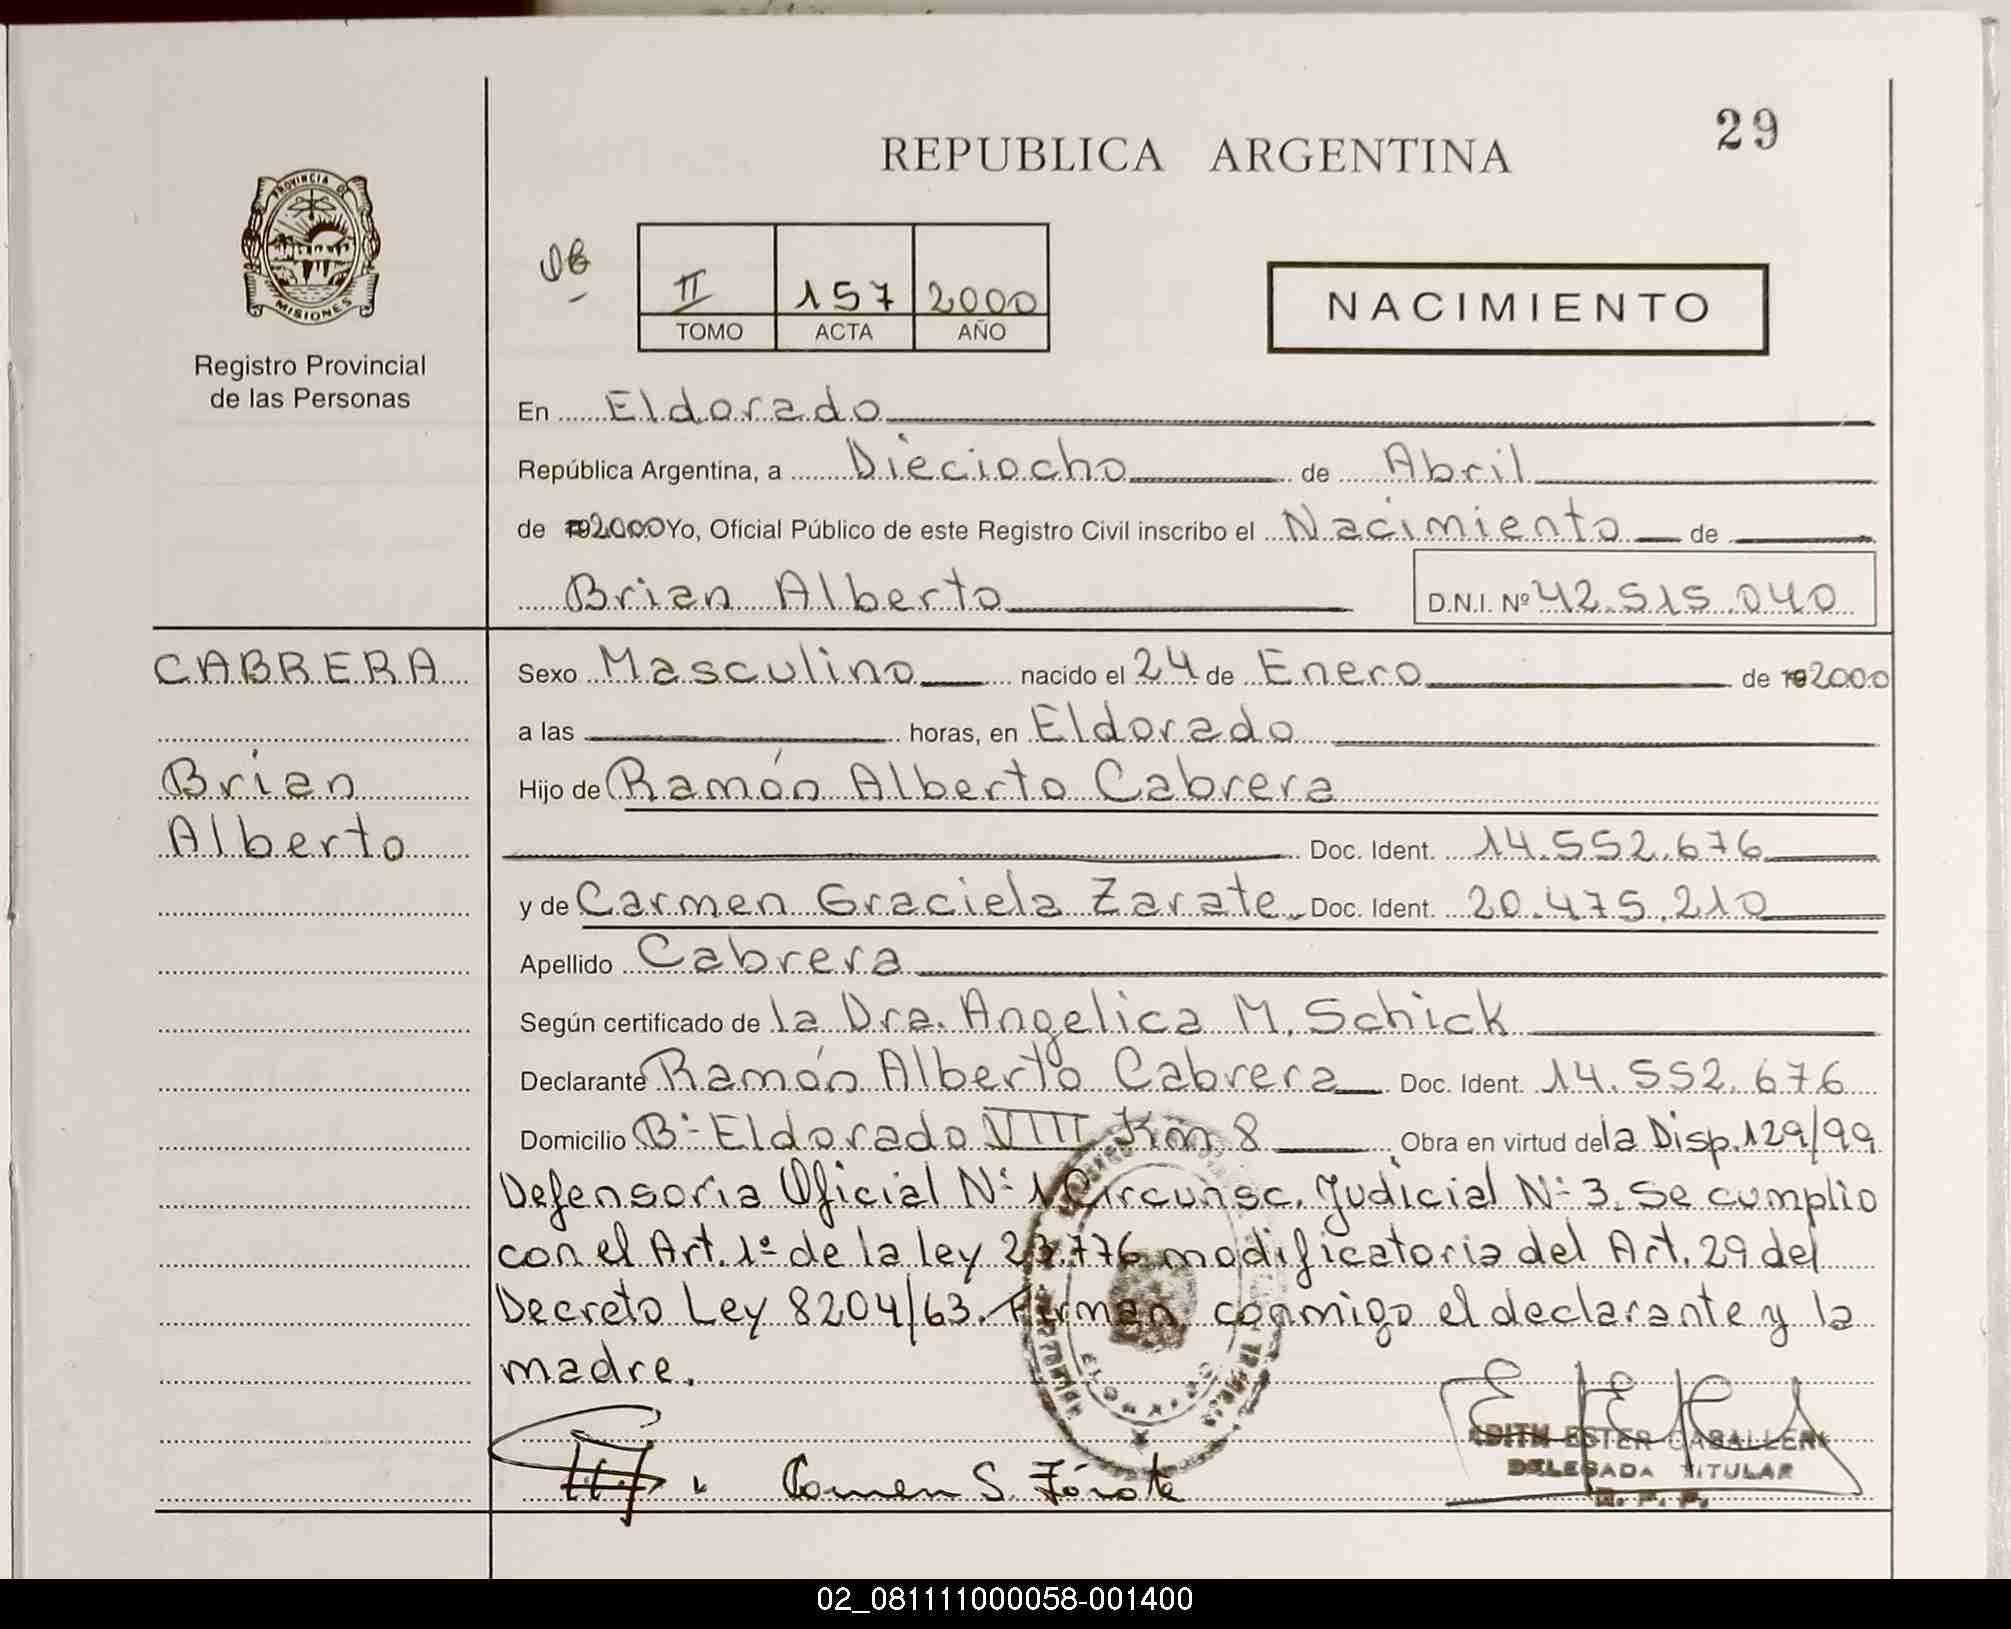 29
REPUBLICA ARGENTINA
PROVINCIA DE
MISIONES
Registro Provincial
de las Personas
II 157 2000
TOMO ACTA AÑO
NACIMIENTO
En Eldorado
República Argentina, a Dieciocho de Abril
de 2000 Yo, Oficial Público de este Registro Civil inscribo el Nacimiento de
Brian Alberto D.N.I. Nº 42.515.040
CABRERA
Brian
Alberto
Sexo Masculino nacido el 24 de Enero de 2000
a las horas, en Eldorado
Hijo de Ramón Alberto Cabrera
Doc. Ident. 14.552.676
y de Carmen Graciela Zarate Doc. Ident. 20.475.210
Apellido Cabrera
Según certificado de la Dra. Angelica M. Schick
Declarante Ramón Alberto Cabrera Doc. Ident. 14.552.676
Domicilio Bº Eldorado VIII Km 8 Obra en virtud de la Disp. 129/99
Defensoria Oficial Nº 1 Circunsc. Judicial Nº 3. Se cumplio
con el Art. 1º de la ley 23.776 modificatoria del Art. 29 del
Decreto Ley 8204/63. Firman conmigo el declarante y la
madre.
EDITH ESTER CABALLERO
DELEGADA TITULAR
R. P. P.
02_081111000058-001400